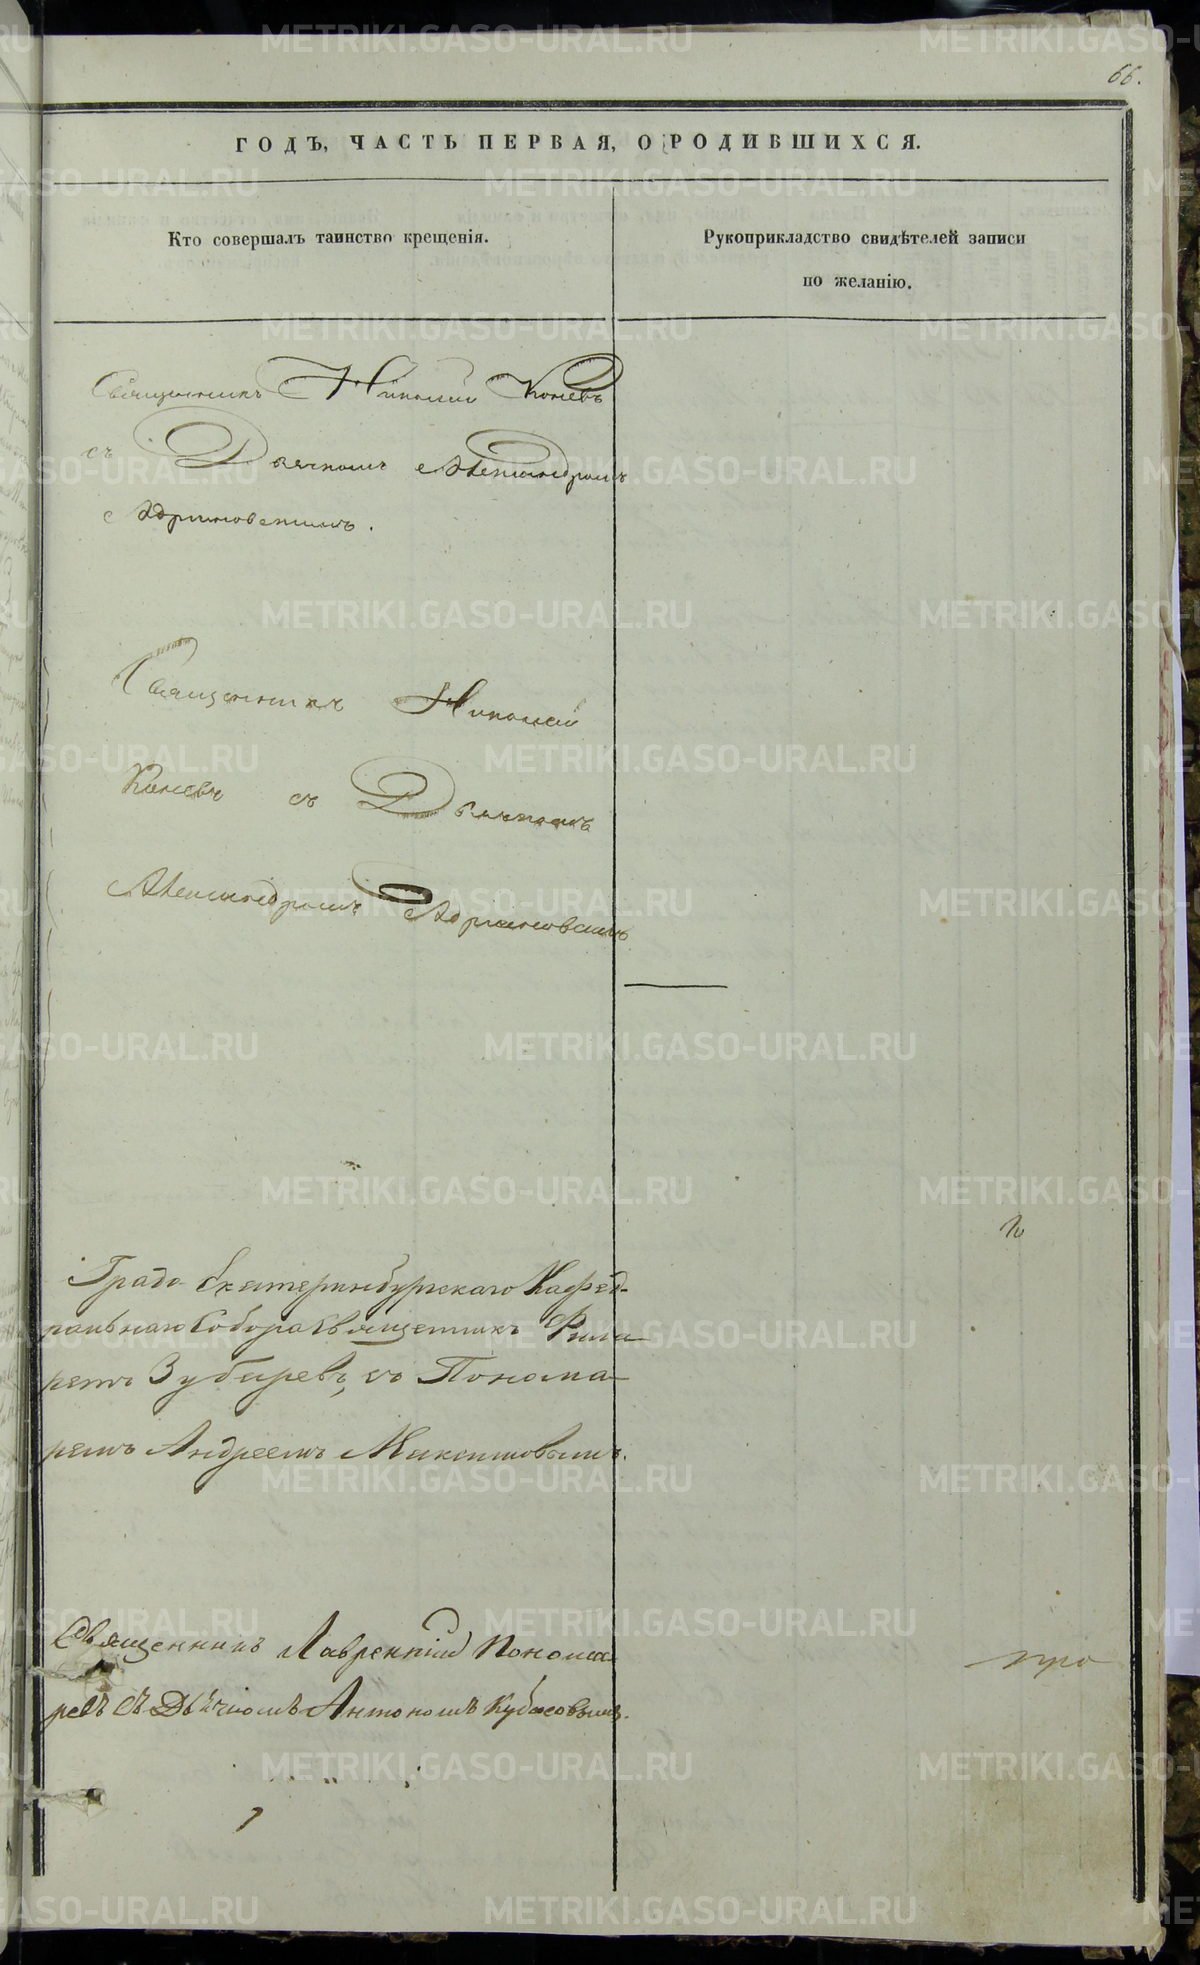 66.
ГОДЪ, ЧАСТЬ ПЕРВАЯ, О РОДИВШИХСЯ.
Кто совершалъ таинство крещенія.
Рукоприкладство свидѣтелей записи
по желанію.
Священникъ Николай Коневъ
съ Дьячкомъ Александромъ
Адріановскимъ.
Священникъ Николай
Коневъ съ Дьячкомъ
Александромъ Адріановскимъ
Градо Екатеринбургскаго Кафед-
ральнаго Собора Священникъ Фила-
ретъ Зубаревъ, съ Понома-
ремъ Андреемъ Максимовымъ.
Священникъ Лаврентій Понома-
ревъ съ Дьячкомъ Антономъ Кубасовымъ.
про
METRIKI.GASO-URAL.RU